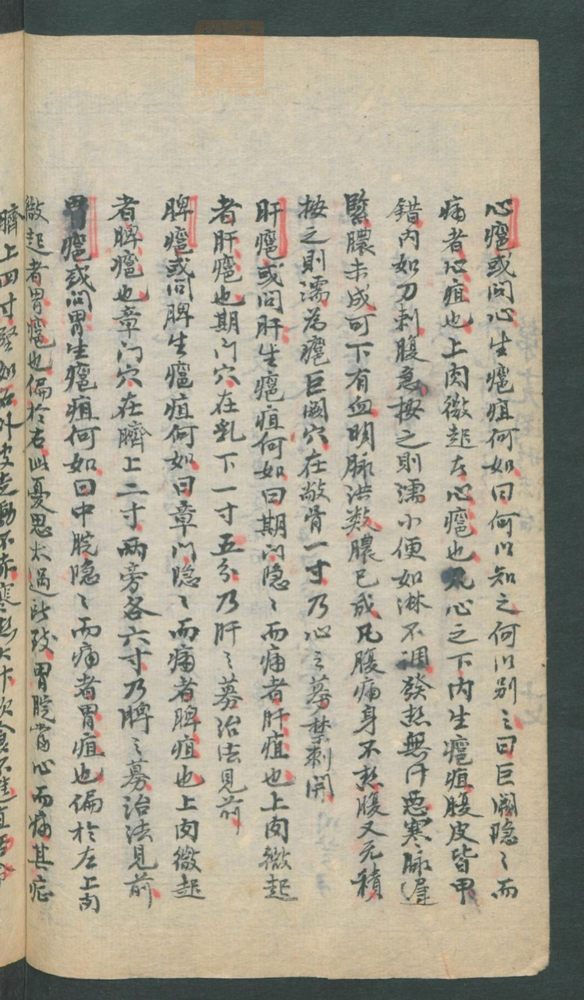 心癰或问心生癰疽何如曰何以知之何以别之曰巨阙隐々而
痛者心疽也上肉微起者心癰也凡心之下内生癰疽腹皮皆甲
错内如刀刺腹急按之则濡小便如淋不调發热無汗恶寒脉遲
緊膿未成可下有血明脉洪数膿已成凡腹痛身不热腹又无積
按之则濡為癰巨阙穴在骨一寸乃心之募禁刺開
肝癰或问肝生癰疽何如曰期门隐々而痛者肝疽也上肉微起
者肝癰也期门穴在乳下一寸五分乃肝之募治法見前
脾癰或问脾生癰疽何如曰章门隐々而痛者脾疽也上肉微起
者脾癰也章门穴在臍上二寸兩旁各六寸乃脾之募治法見前
胃癰或问胃生癰疽何如曰中脘隐々而痛者胃疽也偏於左上肉
微起者胃癰也偏於右此憂思太過所致胃脘當心而痛其症
臍上四寸堅如石外皮走動不赤寒热大